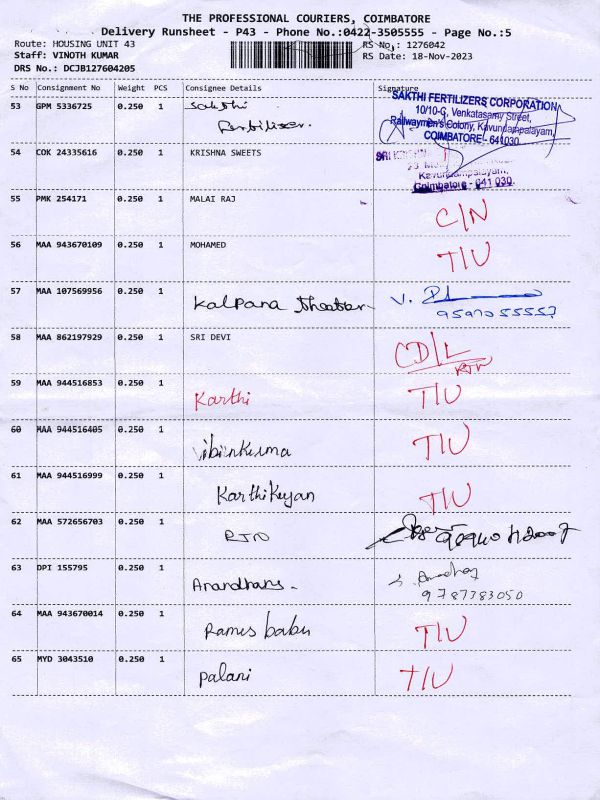 THE PROFESSIONAL COURIERS, COIMBATORE
Delivery Runsheet - P43 - Phone No.:0422-3505555 - Page No.:5
Route: HOUSING UNIT 43 RS No.: 1276042
Staff: VINOTH KUMAR RS Date: 18-Nov-2023
DRS No.: DCJB127604205
S No Consignment No Weight PCS Consignee Details Signature
53 GPM 5336725 0.250 1 Sakthi
Ferbilizer.
SAKTHI FERTILIZERS CORPORATION
10/10-G, Venkatasamy Street,
Railwaymen's Colony, Kavundampalayam,
COIMBATORE - 641030
54 COK 24335616 0.250 1 KRISHNA SWEETS
Kavundampalayam,
Coimbatore - 641 030.
55 PMK 254171 0.250 1 MALAI RAJ C/N
56 MAA 943670109 0.250 1 MOHAMED T/U
57 MAA 107569956 0.250 1 Kalpana theater V.
9597055557
58 MAA 862197929 0.250 1 SRI DEVI CD/L
RTN
59 MAA 944516853 0.250 1 Karthi T/U
60 MAA 944516405 0.250 1 Vibinkuma T/U
61 MAA 944516999 0.250 1 Karthikeyan T/U
62 MAA 572656703 0.250 1 RTO
63 DPI 155795 0.250 1 Anandhans. S. Anandhay
9787383050
64 MAA 943670014 0.250 1 Rames babu T/U
65 MYD 3043510 0.250 1 palani T/U